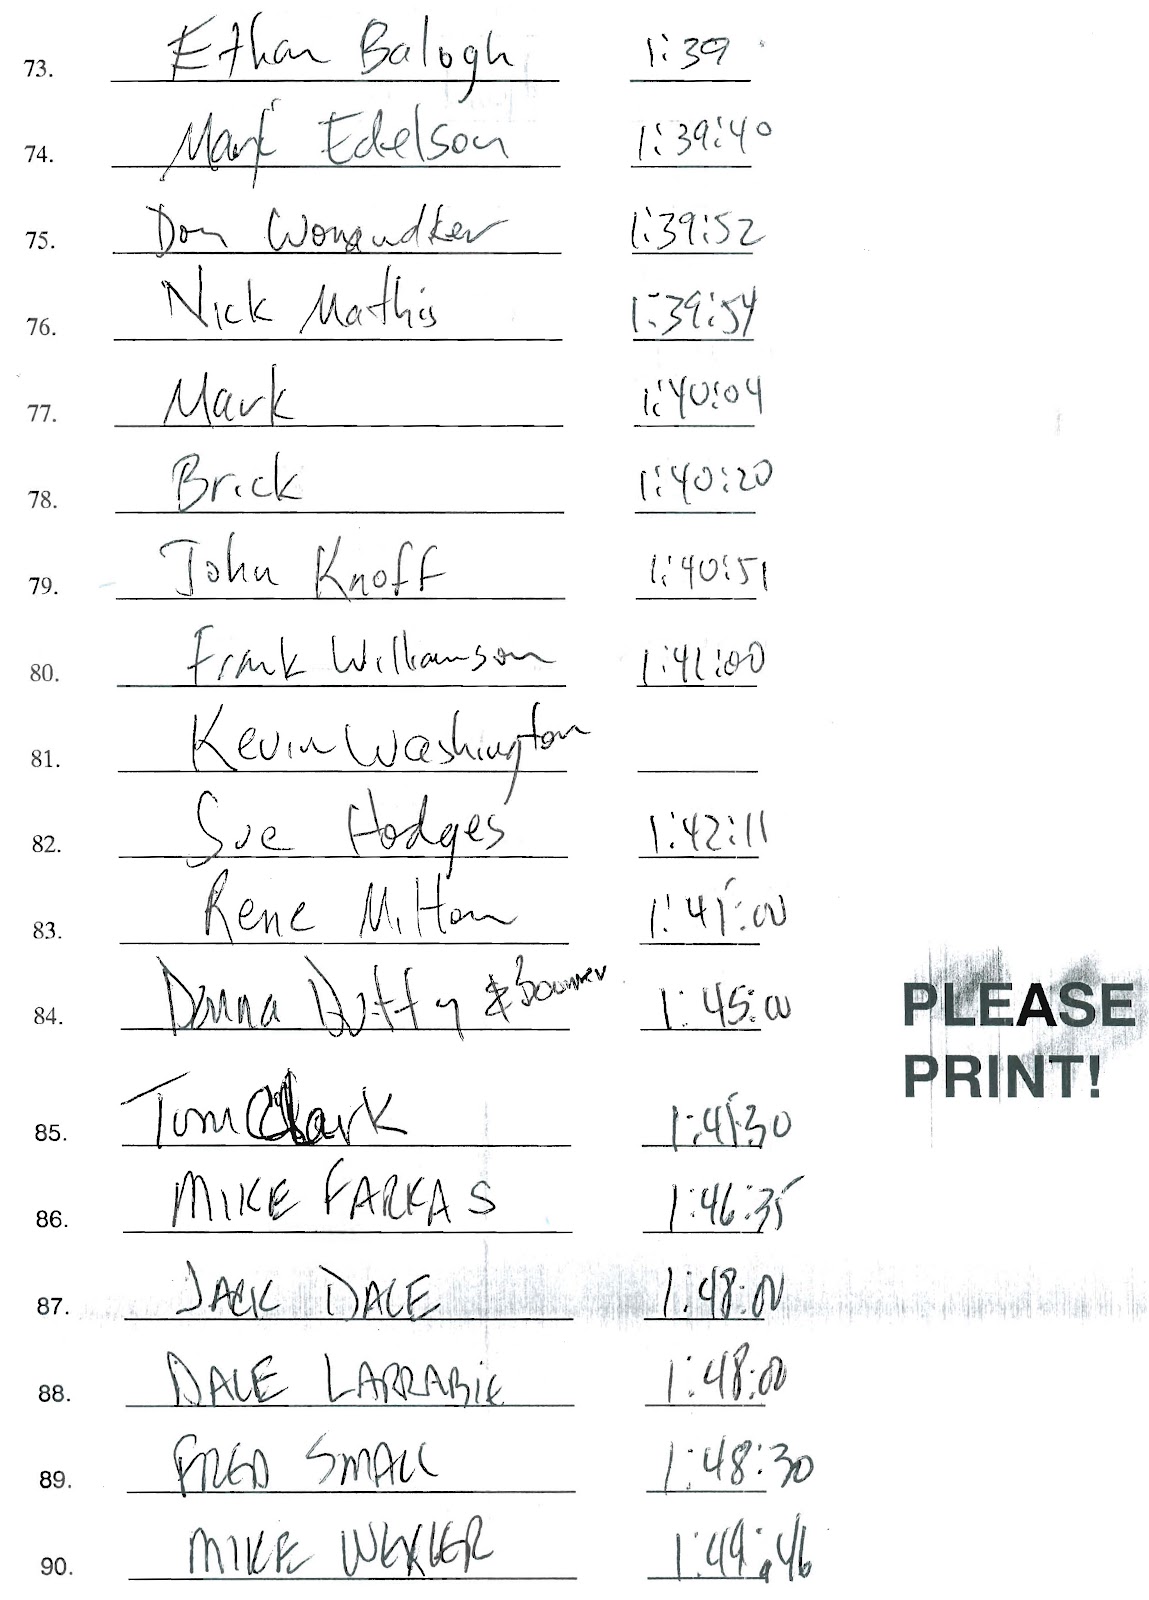 73. Ethan Balogh 1:39
74. Mark Edelson 1:39:40
75. Don 1:39:52
76. Nick Mathis 1:39:54
77. Mark 1:40:04
78. Brick 1:40:20
79. John Knoff 1:40:51
80. Frank Williamson 1:41:00
81. Kevin Washington
82. Sue Hodges 1:42:11
83. Rene Milton 1:45:00
84. Donna Duffy & Boomer 1:45:00
PLEASE
PRINT!
85. Tom Clark 1:45:30
86. MIKE FARKAS 1:46:35
87. JACK DALE 1:48:00
88. DALE LARRABIE 1:48:00
89. FRED SMALL 1:48:30
90. MIKE WEXLER 1:49:46